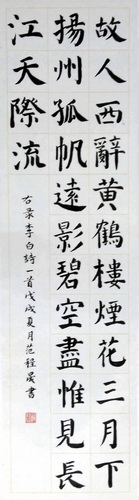 故人西辭黃鶴樓煙花三月下
揚州孤帆遠影碧空盡惟見長
江天際流
右录李白詩一首戊戌夏月范程晟書